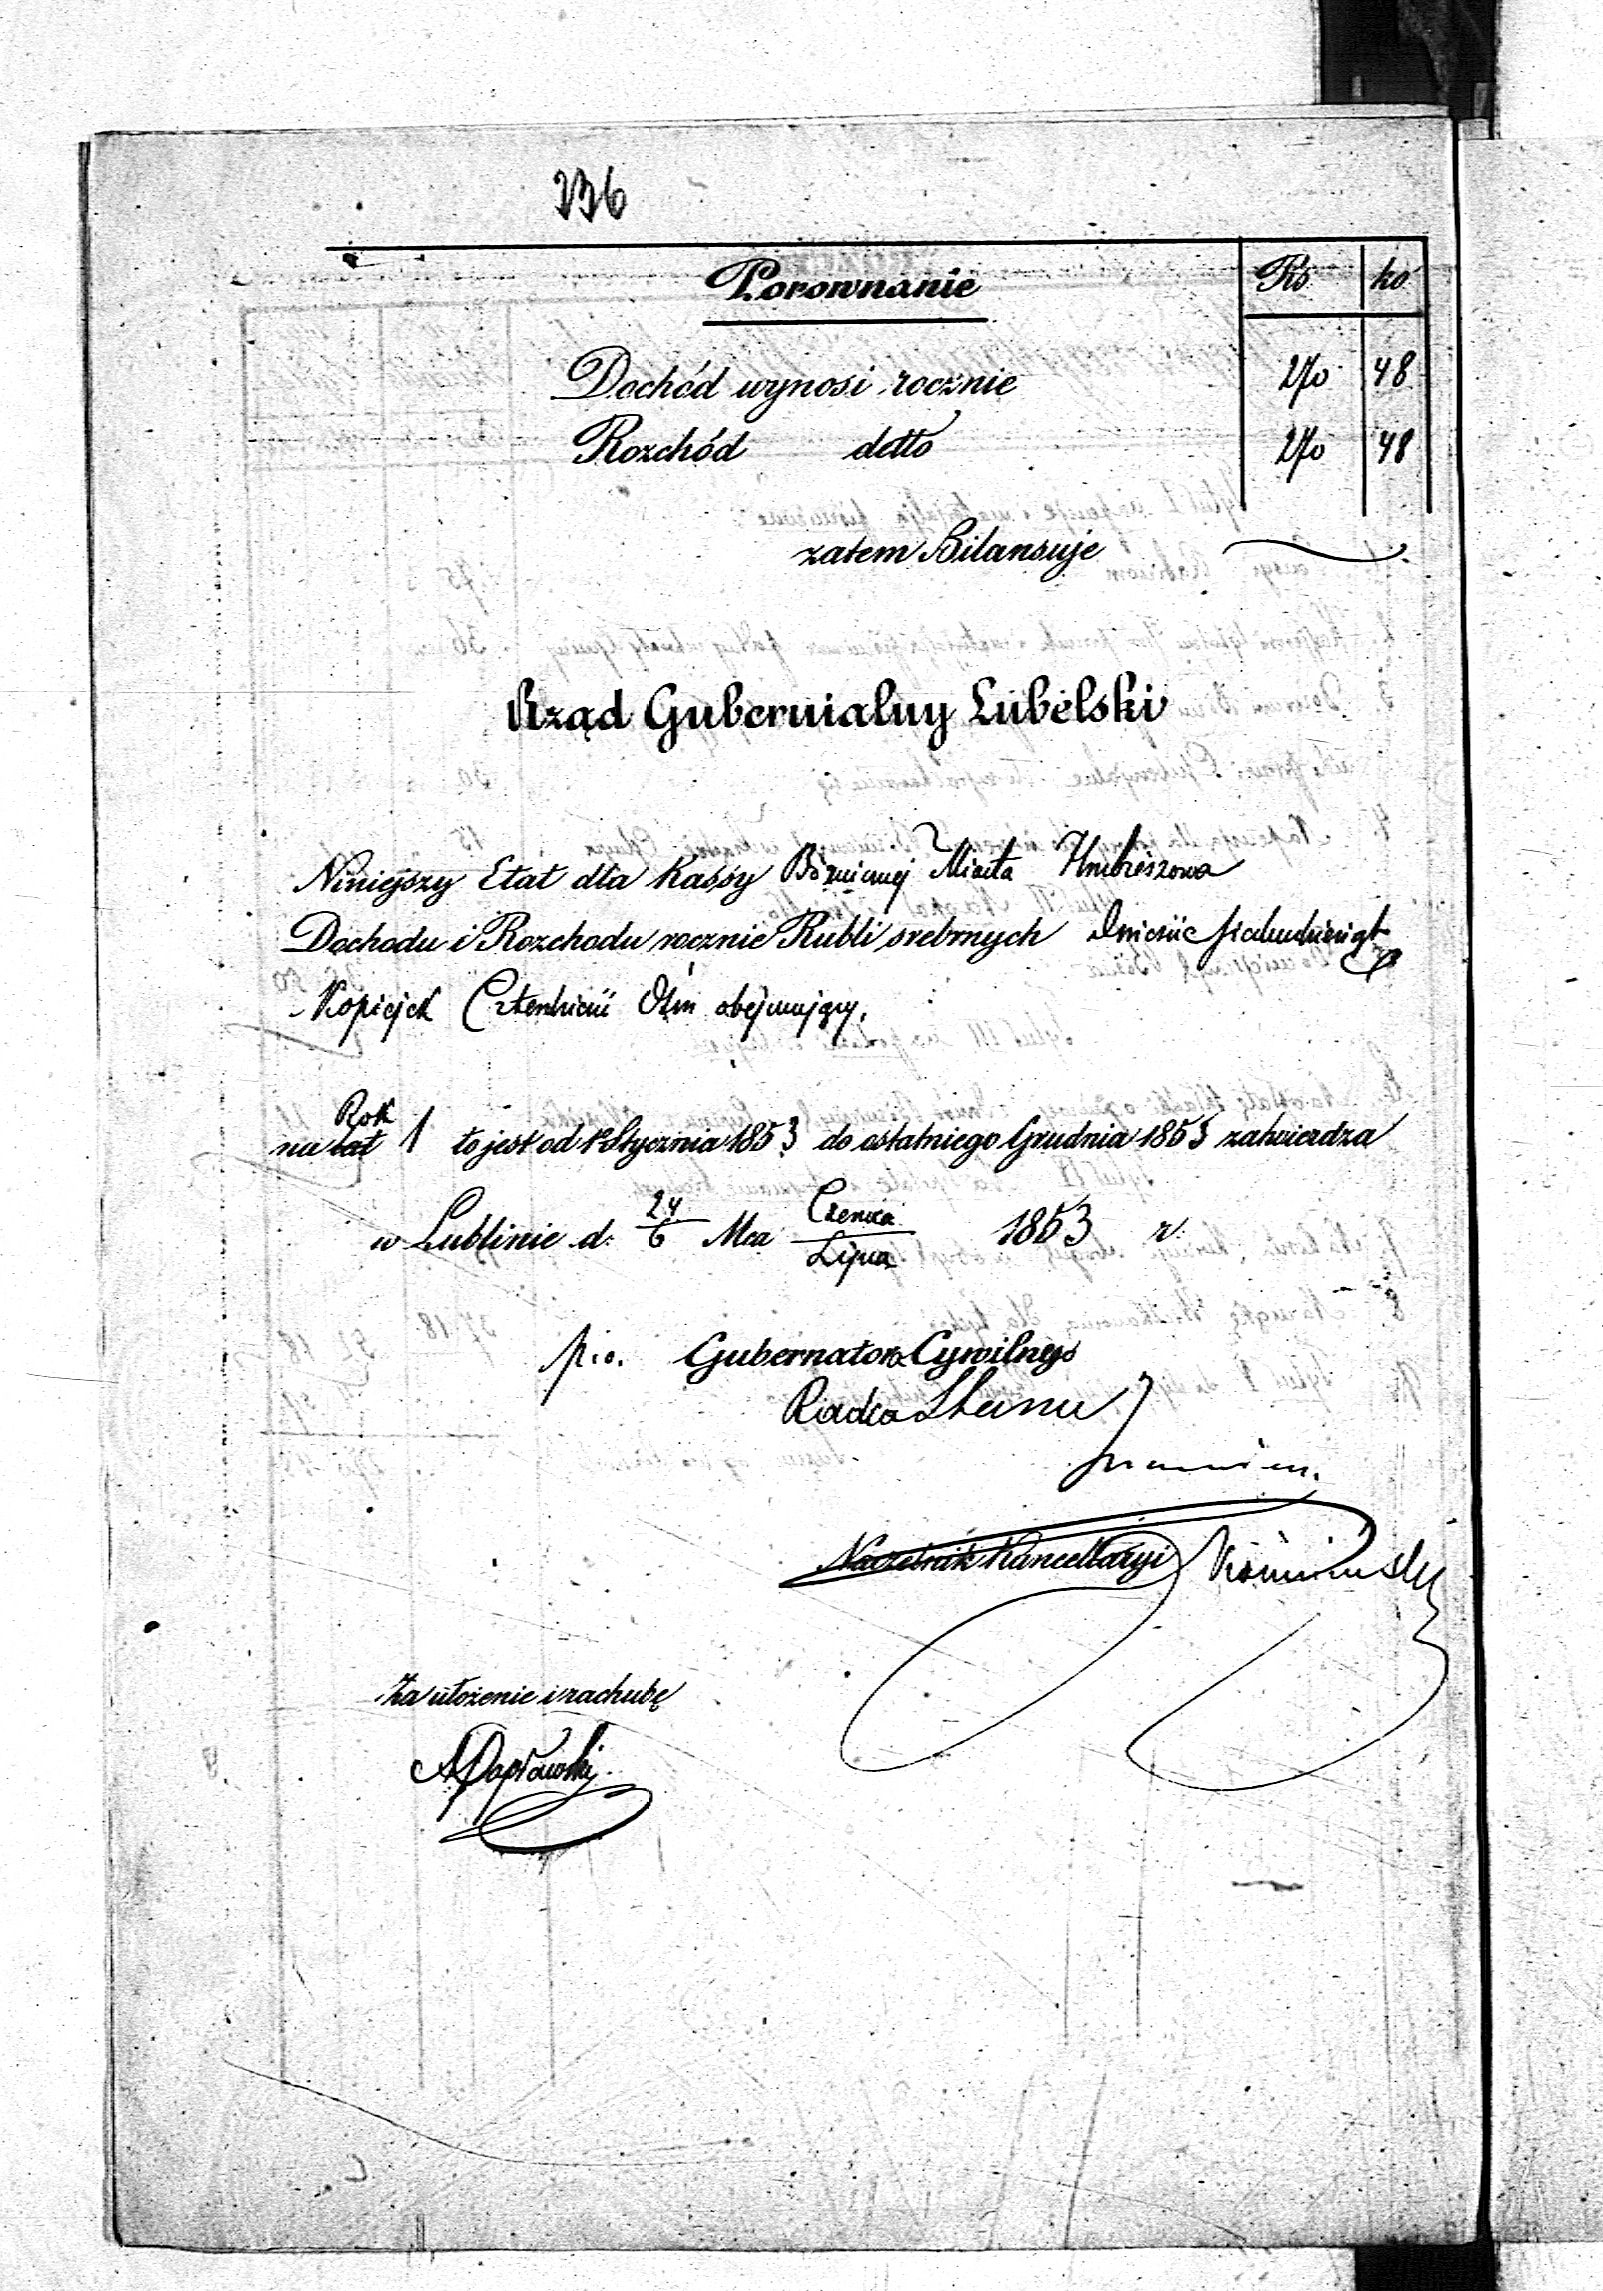 236
Porownanie Rs ko
Dochód wynosi rocznie 270 48
Rozchód detto 270 48
zatem Bilansuje
Rząd Gubernialny Lubelski
Niniejszy Etat dla Kassy Bóżnicznej Miasta Hrubieszowa
Dochodu i Rozchodu rocznie Rubli srebrnych Dwieście siedmdziesiąt
Kopiejek Czterdzieści Ośm obejmujący,
Rok
na lat 1 to jest od 1 Stycznia 1853 do ostatniego Grudnia 1853 zatwierdza
w Lublinie d. 24/6 Mca Czerwca/Lipca 1853 r.
p.o. Gubernatora Cywilnego
Radca Stanu
Naczelnik Kancellaryi
Za ułożenie i rachubę